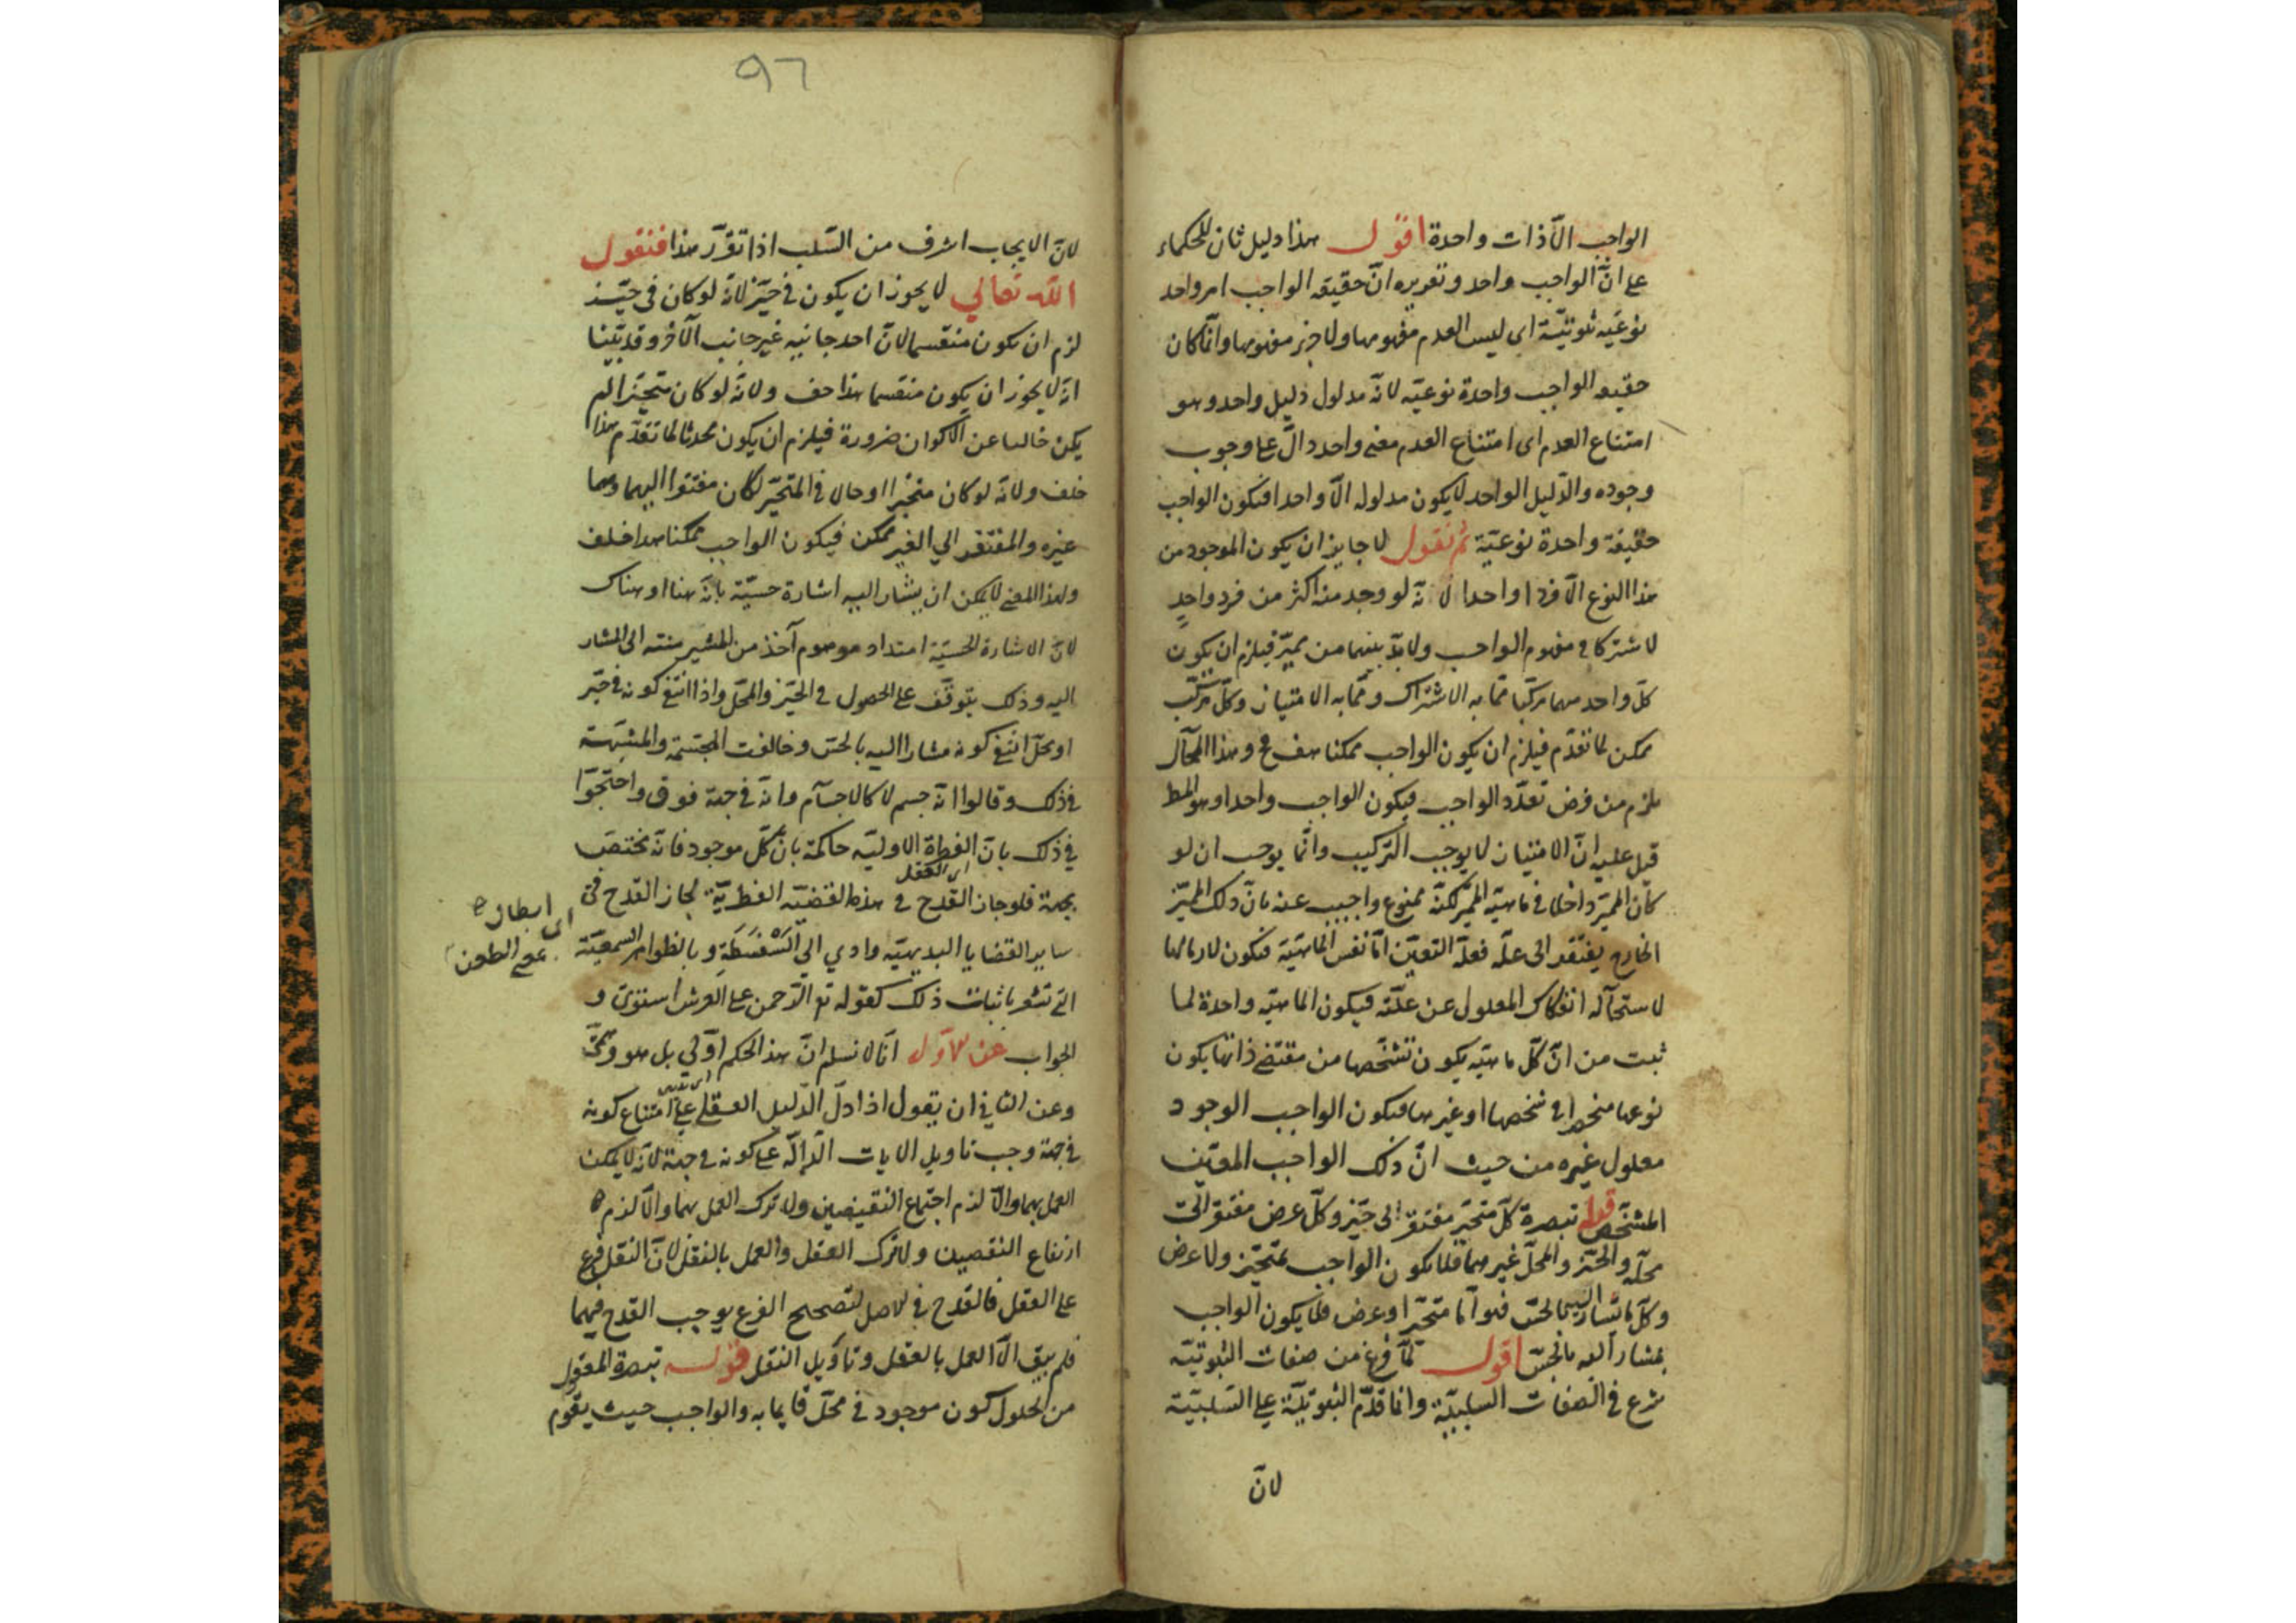 الواجب الّا ذات واحدة اقول هذا دليل ثان للحكماء
على انّ الواجب واحد وتقريره انّ حقيقه الواجب امر واحد
نوعيّه ثبوتيّة اى ليس العدم مفهومها ولا جزء مفهومها وانّما كان
حقيقه الواجب واحدة نوعيّه لانّه مدلول دليل واحد وهو
امتناع العدم اى امتناع العدم معنى واحد دالّ على وجوب
وجوده والدّليل الواحد لا يكون مدلوله الّا واحدا فيكون الواجب
حقيقة واحدة نوعيّة ثم نقول لا جايز ان يكون الموجود من
هذا النوع الّا فردا واحدا لانّه لو وجد منه اكثر من فرد واحدٍ
لاشتركا فى مفهوم الواجب ولا بدّ بينهما من مميّز فيلزم ان يكون
كلّ واحد منهما مركّبا ممّا به الاشتراك وممّا به الامتياز وكلّ مركّب
ممكن لما تقدّم فيلزم ان يكون الواجب ممكنا هف مح وهذا المحآل
يلزم من فرض تعدّد الواجب فيكون الواجب واحدا وهو المط
قيل عليه انّ الامتياز لا يوجب التركيب وانّما يوجب ان لو
كان المميّز داخلا فى ماهيّة المميّز لكنّه ممنوع واجيب عنه بانّ ذلك المميّز
الخارج يفتقر الى علّة فعلّة التعيّن امّا نفس الماهيّة فيكون لازما لها
لاستحآلة انفكاك المعلول عن علّته فيكون الماهيّه واحدة لما
ثبت من انّ كلّ ماهيّه يكون تشخّصها من مقتضى ذاتها يكون
نوعها منحصرا فى شخصها او غيرها فيكون الواجب الوجود
معلول غيره من حيث انّ ذلك الواجب المعيّن
المشخّص قوله تبصرة كلّ متحيّز مفتقر الى حيّز وكلّ عرض مفتقر الى
محلّه والحيّز والمحلّ غيرهما فلا يكون الواجب بمتحيّز ولا عرض
وكلّ ما يشار اليه بالحسّ فهو امّا متحيّز او عرض فلا يكون الواجب
بمشار اليه بالحسّ اقول لمّا فرغ من صفات الثبوتيّة
شرع فى الصفات السلبيّة وانّما قدّم الثبوتيّة على السّلبيّة
لانّ
٩٦
لانّ الايجاب اشرف من السّلب اذا تقرّر هذا فنقول
اللّه تعالي لا يجوز ان يكون فى حيّز لانّه لو كان فى حيّز
لزم ان يكون منقسما لانّ احد جانبيه غير جانب الآخر وقد بيّنا
انّه لا يجوز ان يكون منقسما هذا خف ولانّه لو كان متحيّزا لم
يكن خاليا عن الاكوان ضرورة فيلزم ان يكون محدثا لما تقدّم هذا
خلف ولانّه لو كان متحيّزا او حالا فى المتحيّز لكان مفتقرا اليهما وهما
غيره والمفتقر الي الغير ممكن فيكون الواجب ممكنا هذا خلف
ولهذا المعنى لا يمكن ان يشار اليه اشارة حسيّة بانّه هنا او هناك
لانّ الاشارة الحسيّة امتداد موهوم آخذ من المشير منته الى المشار
اليه وذلك يتوقّف على الحصول فى الحيّز والمحلّ واذا انتفى كونه فى حيّز
او محلّ انتفى كونه مشارا اليه بالحسّ وخالفت المجسّمة والمشبّهة
فى ذلك وقالوا انّه جسم لا كالاجسآم وانّه فى جهة فوق واحتجّوا
فى ذلك بانّ الفطرة الاوليّه حاكمة بانّ كلّ موجود فانّه يختصّ
اى العقل
بجهة فلو جاز القدح فى هذه القضيّه الفطريّة لجاز القدح فى
اى ابطال
بمعنى الطعن
ساير القضايا البديهيّه وادي الى السَّفْسَطَةِ وبالظواهر السمعيّة
التى تشعر باثبات ذلك كقوله تع الرّحمن على العرش استوى و
الجواب عن الاوّل انّا لا نسلم انّ هذا الحكم اوّلى بل هو وهمىّ
وعن الثاني ان يقول اذا دلّ الدّليل العقلى على امتناع كونه
فى جهة وجب تاويل الايات الدّالّه على كونه فى جهة لانّه لا يمكن
العمل بهما والّا لزم اجتماع النقيضين ولا ترك العمل بهما والّا لزم
ارتفاع النقيضين ولا ترك العقل والعمل بالنقل لانّ النقل فرع
على العقل فالقدح فى الاصل لتصحيح الفرع يوجب القدح فيهما
فلم يبق الّا العمل بالعقل وتاويل النقل قوله تبصرة المعقول
من الحلول كون موجود فى محلّ قايما به والواجب حيث يقوم